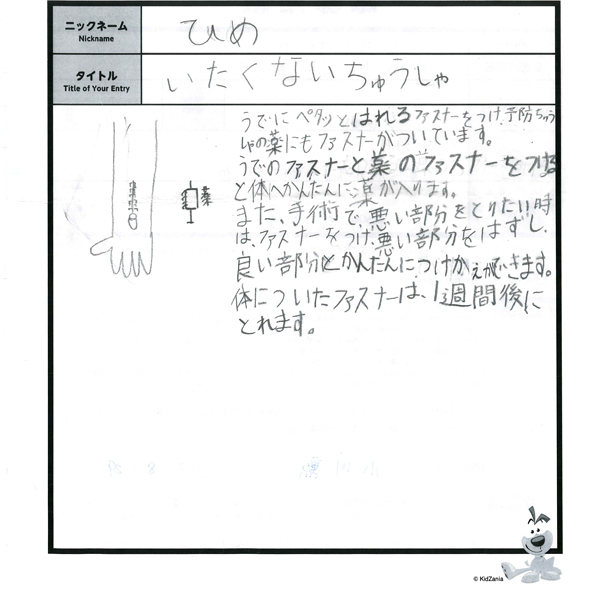 ニックネーム
Nickname
ひめ
タイトル
Title of Your Entry
いたくないちゅうしゃ
うでにペタッとはれるファスナーをつけ、予防ちゅう
しゃの薬にもファスナーがついています。
うでのファスナーと薬のファスナーをつける
と体へかんたんに薬が入ります。
また、手術で、悪い部分をとりたい時
は、ファスナーをつけ、悪い部分をはずし、
良い部分とかんたんにつけかえができます。
体についたファスナーは、1週間後に
とれます。
薬
© KidZania